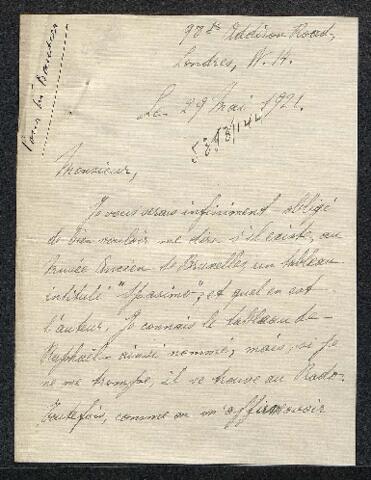 Addison Road,
Londres, W. 14.
Le 29 Mai 1921.
Monsieur,
Je vous serais infiniment obligé
de bien vouloir me dire s'il existe, au
Musée Ancien de Bruxelles un tableau
intitulé "Spasimo", et quel en est
l'auteur. Je connais le tableau de
Raphaël ainsi nommé, mais, si je
ne me trompe, il se trouve au Prado.
Toutefois, comme on m'affirme voir